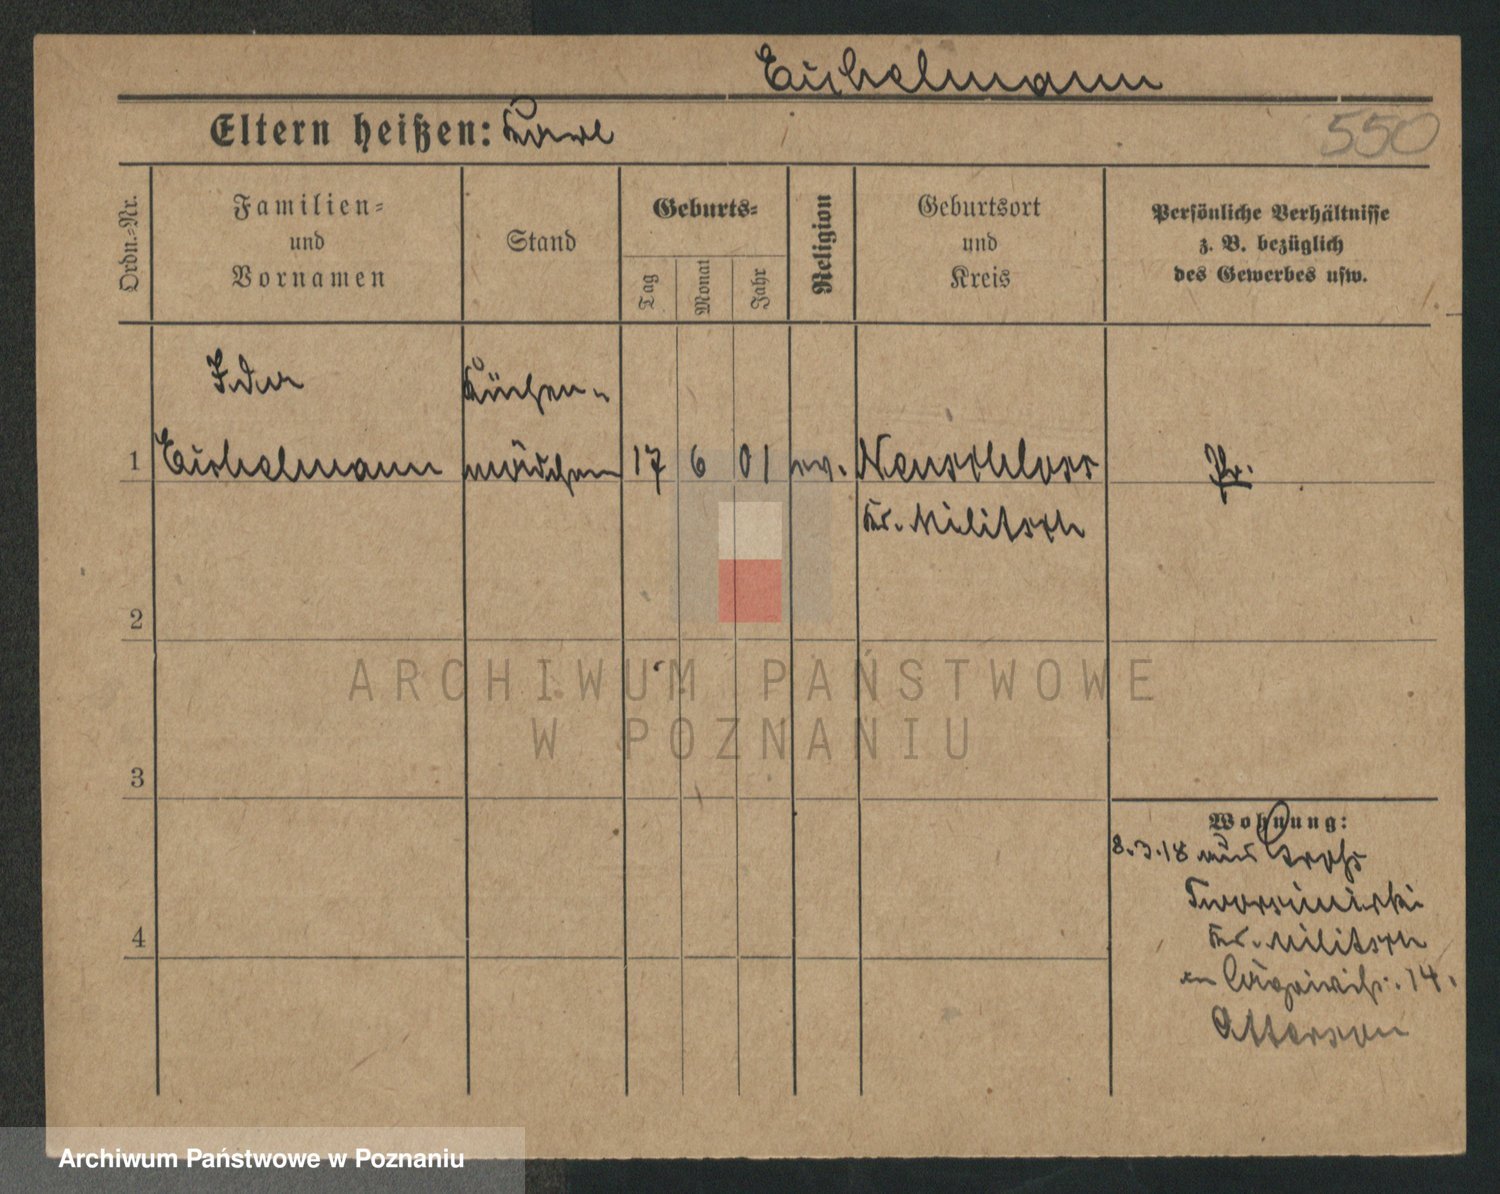 Eichelmann
Eltern heißen: Karl
550
Ordn.-Nr.
Familien-
und
Vornamen
Stand
Geburts-
Tag
Monat
Jahr
Religion
Geburtsort
und
Kreis
Persönliche Verhältnisse
z. B. bezüglich
des Gewerbes usw.
Ida
Küchen-
1 Eichelmann mädchen 17 6 01 ev. Neuschloss Pr.
Kr. Militsch
2
3
4
Wohnung:
8.3.18 aus
Kr. Militsch
14.
ARCHIWUM PAŃSTWOWE
W POZNANIU
Archiwum Państwowe w Poznaniu